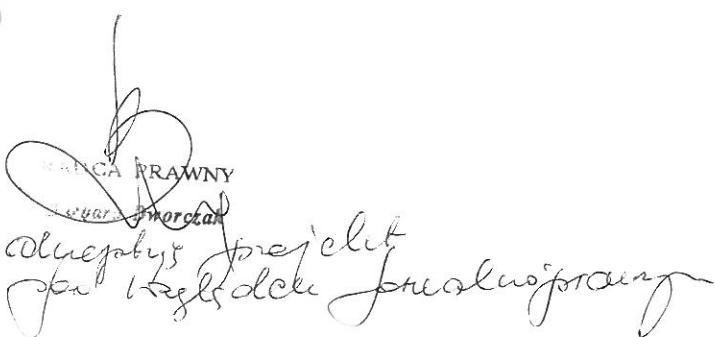 RADCA PRAWNY
Dworczak
projekt
pod względem formalnoprawnym